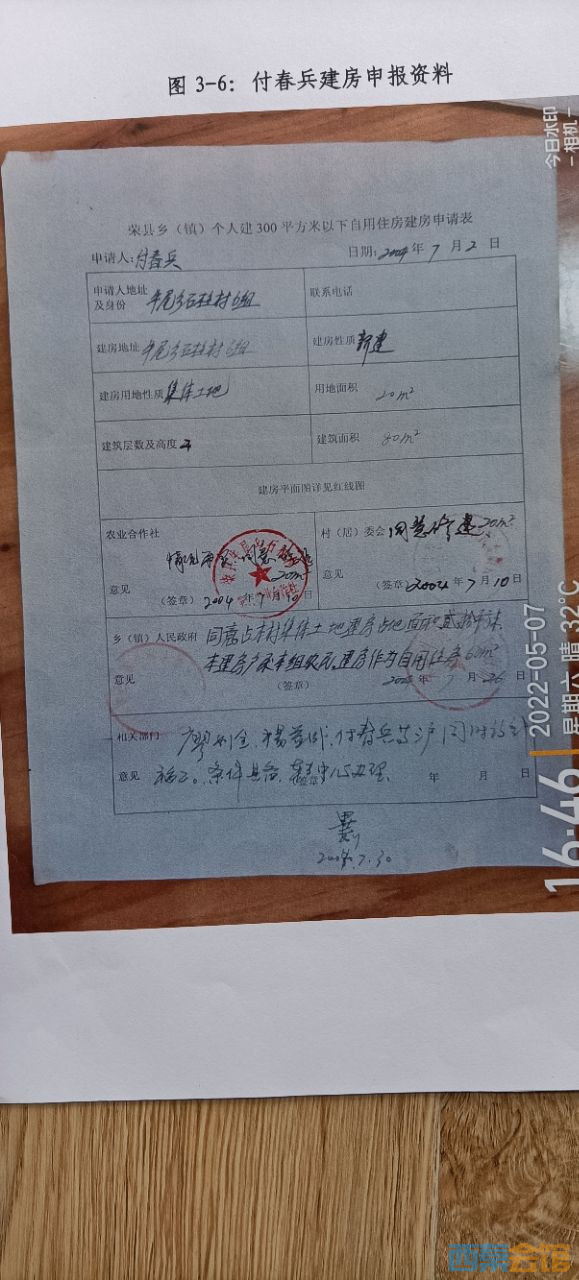 图 3-6：付春兵建房申报资料
今日水印
-相机-
荣县乡（镇）个人建300平方米以下自用住房建房申请表
申请人:付春兵 日期:2004年7月2日
申请人地址及身份 牟尾乡石柱村6组 联系电话
建房地址 牟尾乡石柱村6组 建房性质 新建
建房用地性质 集体土地 用地面积 20m²
建筑层数及高度 建筑面积 80m²
建房平面图详见红线图
农业合作社 村（居）委会 同意修建20m²
情况 同意
20m²
意见 意见
（签章）2004年7月10日 （签章）2004年7月10日
乡（镇）人民政府 同意占本村集体土地建房占地面积贰拾平米.
本建房户系本组农民,建房作为自用住房60m²
意见 （签章） 7月26日
相关部门 付春兵
意见 条件具备 办理. 年 月 日
2004.7.30
2022-05-07
星期六 晴 32°C
16:46